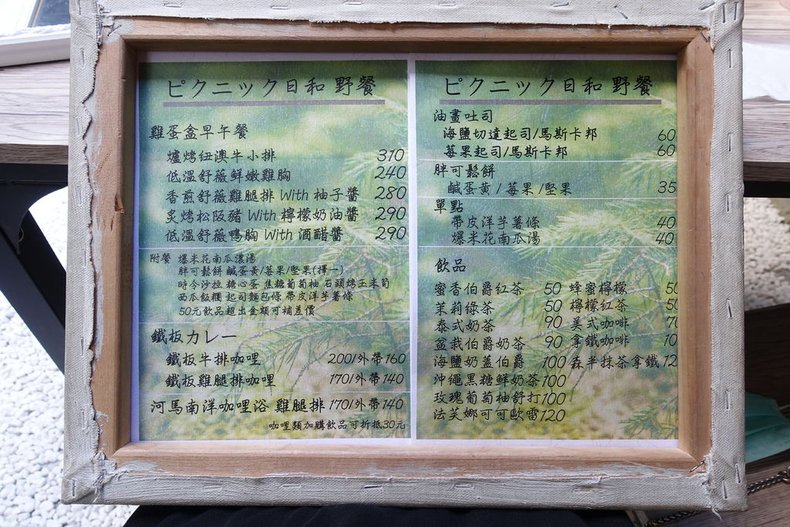 ピクニック日和 野餐
雞蛋盒早午餐
爐烤紐澳牛小排 310
低溫舒薇鮮嫩雞胸 240
香煎舒薇雞腿排 With 柚子醬 280
炙烤松阪豬 With 檸檬奶油醬 290
低溫舒薇鴨胸 With 酒醋醬 290
附餐 爆米花南瓜濃湯
胖可鬆餅 鹹蛋黃/莓果/堅果(擇一)
時令沙拉 糖心蛋 焦糖葡萄柚 石頭烤玉米筍
西瓜飯糰 起司麵包條 帶皮洋芋薯條
50元飲品超出金額可補差價
鐵板カレー
鐵板牛排咖哩 200/外帶160
鐵板雞腿排咖哩 170/外帶140
河馬南洋咖哩浴 雞腿排 170/外帶140
咖哩類加購飲品可折抵30元
ピクニック日和 野餐
油畫吐司
海鹽切達起司/馬斯卡邦 60
莓果起司/馬斯卡邦 60
胖可鬆餅
鹹蛋黃/莓果/堅果 35
單點
帶皮洋芋薯條 40
爆米花南瓜湯 40
飲品
蜜香伯爵紅茶 50 蜂蜜檸檬
茉莉綠茶 50 檸檬紅茶
泰式奶茶 90 美式咖啡
盆栽伯爵奶茶 90 拿鐵咖啡
海鹽奶蓋伯爵 100 森半抹茶拿鐵
沖繩黑糖鮮奶茶 100
玫瑰葡萄柚舒打 100
法芙娜可可歐蕾 120